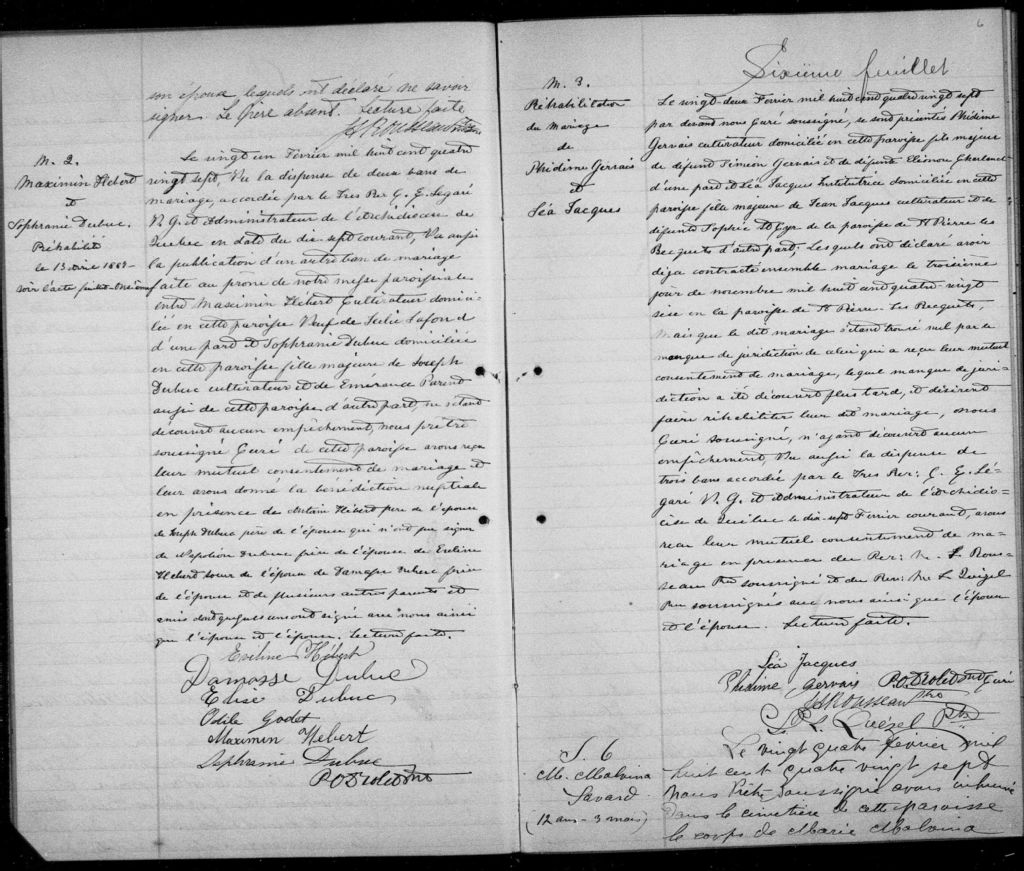 son époux lesquels ont déclaré ne savoir
signer. Le Père absent. Lecture faite
JSRousseau Ptre
M. 2.
Maximin Hebert
et
Sophranie Dubuc.
Réhabilité
le 13 avril 1889
voir l'acte feuillet
Le vingt un Février mil huit cent quatre
vingt sept, Vu la dispense de deux bans de
mariage, accordée par le Tres Rev C. E. Legaré
V. G. et Administrateur de l'Archidiocèse de
Quebec en date du dix sept courant, Vu aussi
la publication d'un autre ban de mariage
faite au prone de notre messe paroissiale
entre Maximin Hebert Cultivateur domici-
lié en cette paroisse Veuf de Lafond
d'une part et Sophranie Dubuc domiciliée
en cette paroisse fille majeure de Joseph
Dubuc cultivateur et de Emerance Parend
aussi de cette paroisse d'autre part, ne s'étant
découvert aucun empêchement, nous prêtre
soussigné Curé de cette paroisse avons reçu
leur mutuel consentement de mariage et
leur avons donné la bénédiction nuptiale
en présence de Antoine Hébert père de l'époux
de Joseph Dubuc père de l'épouse qui n'ont pu signer
de Napoléon Dubuc frère de l'épouse de Eveline
Hebert soeur de l'époux de Damasse Dubuc frère
de l'épouse et de plusieurs autres parents et
amis dont quelques uns ont signé avec nous ainsi
que l'épouse et l'époux. Lecture faite.
Eveline Hébert
Damasse Dubuc
Elise Dubuc
Odile Godet
Maximin Hebert
Sephranie Dubuc
P.O. Drolet Ptre
6
Sixième feuillet
M. 3.
Réhabilitation
du Mariage
de
Phidime Gervais
et
Léa Jacques
Le vingt-deux Fevrier mil huit cent quatre vingt sept
par devant nous Curé soussigné, se sont présentés Phidime
Gervais cultivateur domicilié en cette paroisse fils majeur
de défunt Siméon Gervais et de défunte Eléonore
d'une part et Léa Jacques Institutrice domiciliée en cette
paroisse fille majeure de Jean Jacques cultivateur et de
défunte Sophie St Cyr de la paroisse de St Pierre les
Becquets d'autre part; Lesquels ont déclaré avoir
déja contracté ensemble mariage le troisième
jour de novembre mil huit cent quatre vingt
six en la paroisse de St Pierre Les Becquets,
mais que le dit mariage s'étant trouvé nul par le
manque de juridiction de celui qui a reçu leur mutuel
consentement de mariage, lequel manque de juri-
diction a été découvert plus tard, et désirent
faire réhabiliter leur dit mariage, nous
Curé soussigné, n'ayant découvert aucun
empêchement, Vu aussi la dispense de
trois bans accordée par le Tres Rev: C. E. Lé-
garé V. G. et administrateur de l'Archidio-
cèse de Québec le dix-sept Fevrier courant, avons
reçu leur mutuel consentement de ma-
riage en presence du Rev: Mr. S. Rous-
seau Ptre soussigné et du Rev: Mr L Quézel
Ptre soussignés avec nous ainsi que l'époux
et l'épouse. Lecture faite.
Léa Jacques
Phidime Gervais P.O. Drolet Ptre Curé
JSRousseau Ptre
L. Quézel Ptre
S. 6
M. Malvina
Savard
(12 ans - 3 mois)
Le vingt quatre février mil
huit cent quatre vingt sept
nous Prêtre soussigné avons inhumé
dans le cimetière de cette paroisse
le corps de Marie Malvina